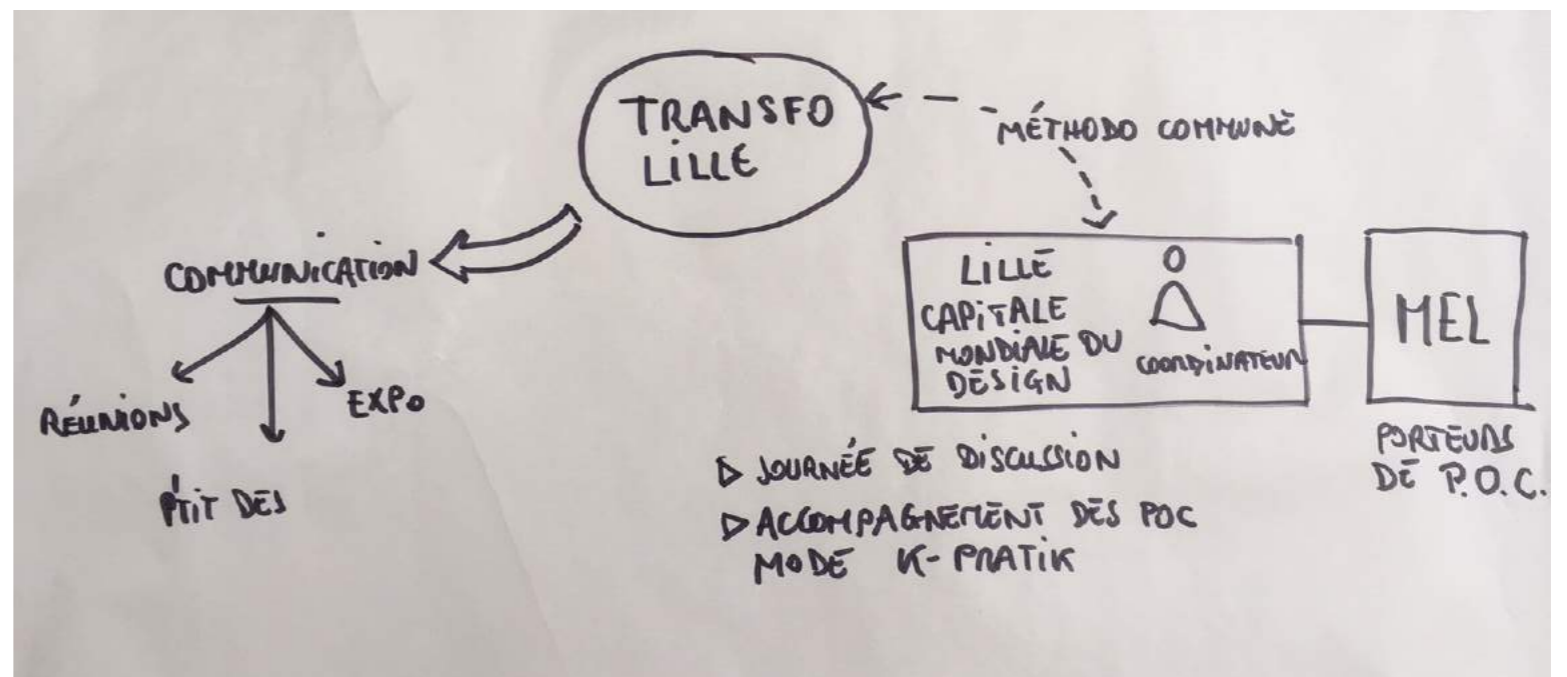 TRANSFO
LILLE
MÉTHODO COMMUNE
COMMUNICATION
RÉUNIONS
P'TIT DES
EXPO
LILLE
CAPITALE
MONDIALE DU
DESIGN
COORDINATEUR
MEL
PORTEURS
DE P.O.C.
▷ JOURNÉE DE DISCUSSION
▷ ACCOMPAGNEMENT DES POC
MODE K-PRATIK